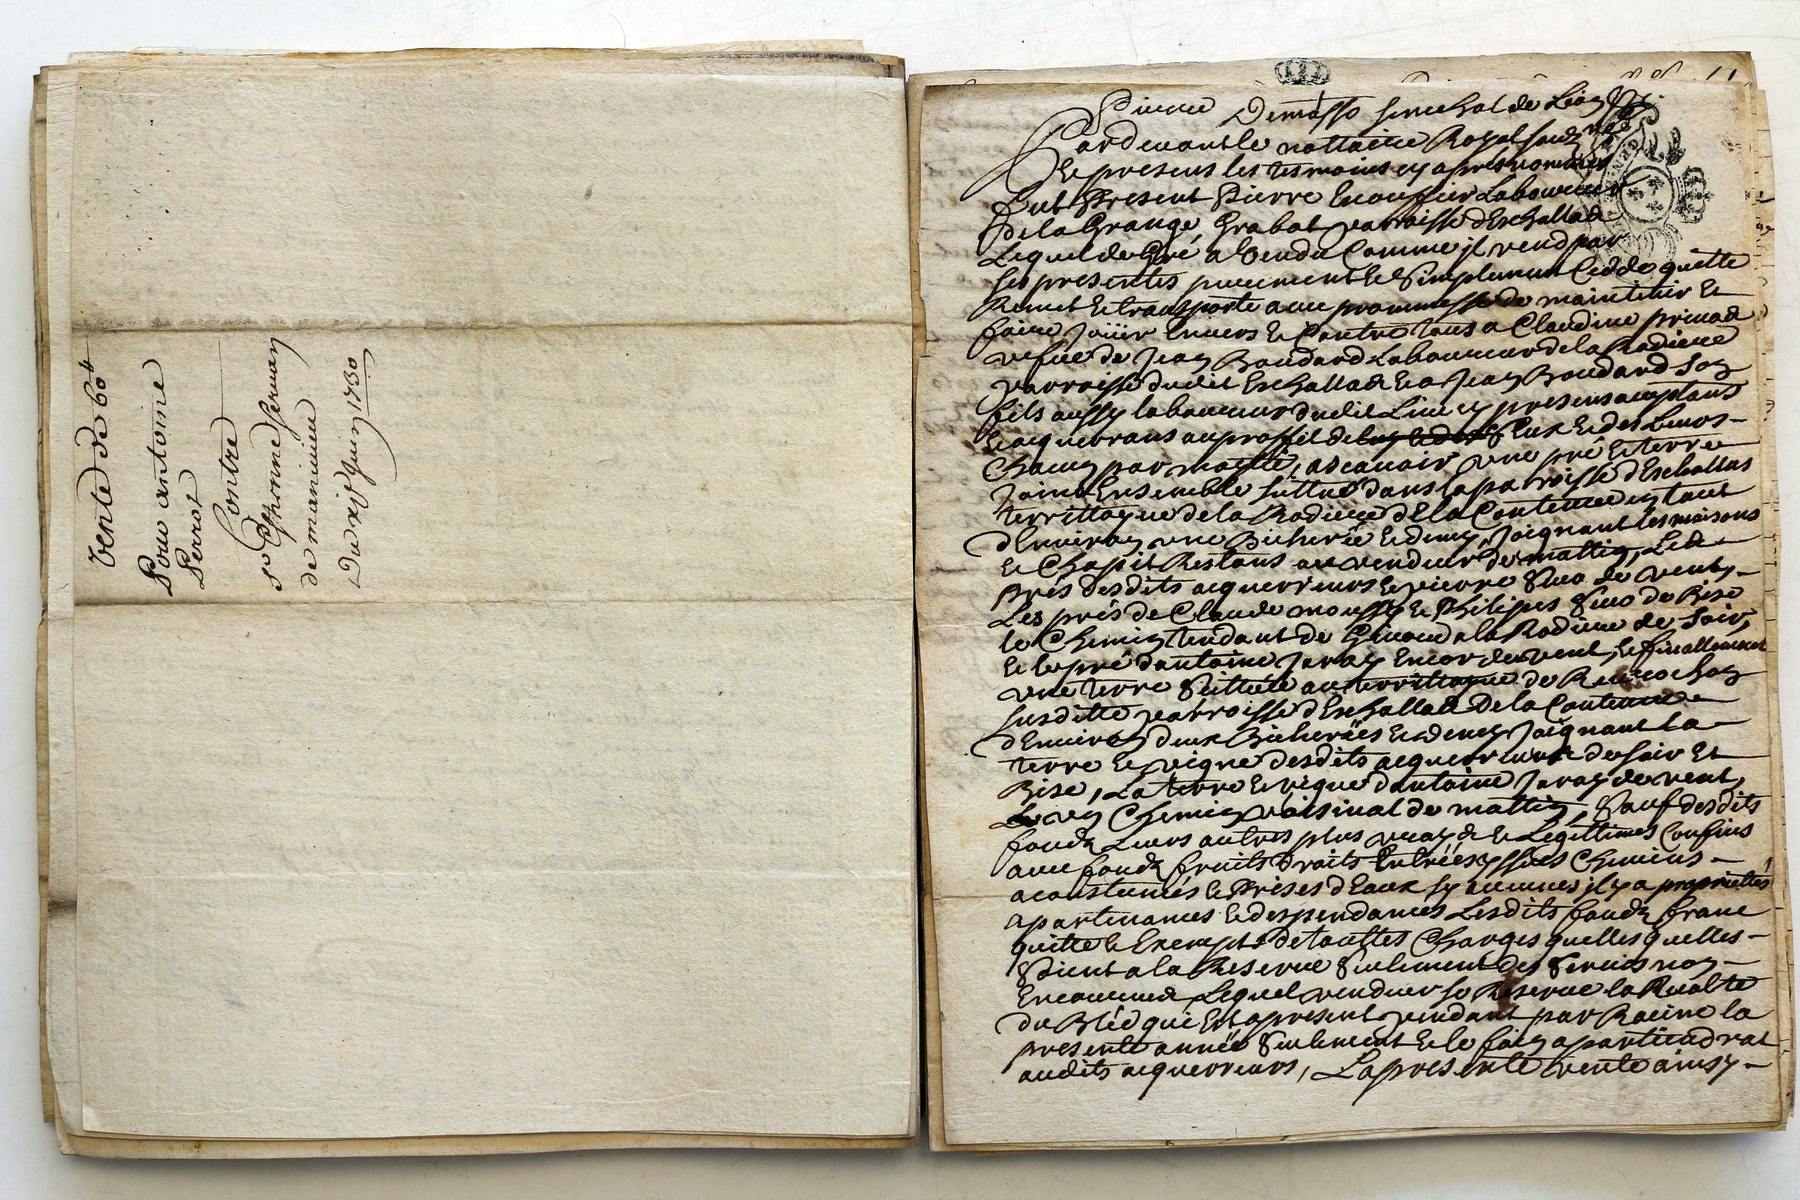 Vente de 60#
Pour antoine
Perrot
Contre
sr Estienne
de
Du xije Juin 1730
Pierre senechal de
Pardevant le nottaire Royal
Et presens les tesmoins cy apres nommes
fut Present Pierre Laboureur
De la Grange Grabat parroisse d'Eschallas
Lequel de Gré a Vendu Comme il vend par
ses presentes purement Et Simplement Cedde quitte
Remet Et transporte avec prommesse de maintenir Et
faire Joüir Envers Et Contre tous a Claudine
vefue de Jean Boudard Laboureur de la Rodiere
parroisse dudit Eschallas Et a Jean Boudard Son
fils aussy laboureur dudit Lieu cy presens acceptans
Et acquerrans au proffit Et des Leurs
Chacun par moytié, a scavoir une pré Et terre
Joint Ensemble sittué dans la parroisse d'Eschallas
territtoyre de la Rodiere De La Contenue En tout
d'Environ une Bicherée Et demy, Joignant les maisons
Et Chapit Restans au vendeur de mattin, Les
Prés desdits acquerreurs Et pierre de vent,
Les prés de Claude Et Philipes de Bise
le Chemin tendant de a la Rodiere de Soir,
Et le pré d'antoine Jaray Encor de vent, Et finallement
une terre Scittuée au territtoyre de
susditte parroisse d'Eschallas De la Contenue
d'Environ deux Bicherées Et demy Joignant La
terre Et vigne desdits acquerreurs de soir Et
Bise, La terre Et vigne d'antoine Jaray de vent,
Et un Chemin voisinal de mattin, Sauf desdits
fonds Leurs autres plus vrays Et Legittimes Confins
avec fonds fruits Droits Entrées yssües Chemins
acoustumés Et Prises d'Eaux sy aucunes il y a proprietés
apartenances Et despendances Lesdits fonds franc
quitte Et Exempts de touttes Charges quelles quelles
Soient a la Reserve Seulement des Servis non
Encourues Lequel vendeur se Reserve la Recolte
du Bléd qui Est apresent pendant par Racine la
presente année Seulement Et le foin apartiendrat
audits acquerreurs, La presente vente ainsy